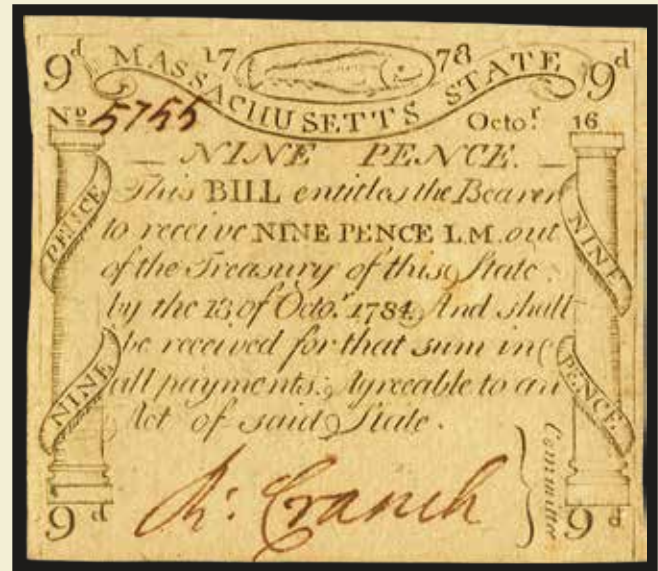 9d 17 78 9d
MASSACHUSETTS STATE
No 5755 Octor. 16
NINE PENCE.
This BILL entitles the Bearer
to receive NINE PENCE L.M. out
of the Treasury of this State
by the 13 of Octor. 1784. And shall
be received for that sum in
all payments. Agreeable to an
Act of said State.
PENCE
NINE
NINE
PENCE
R: Cranch
Committee
9d 9d